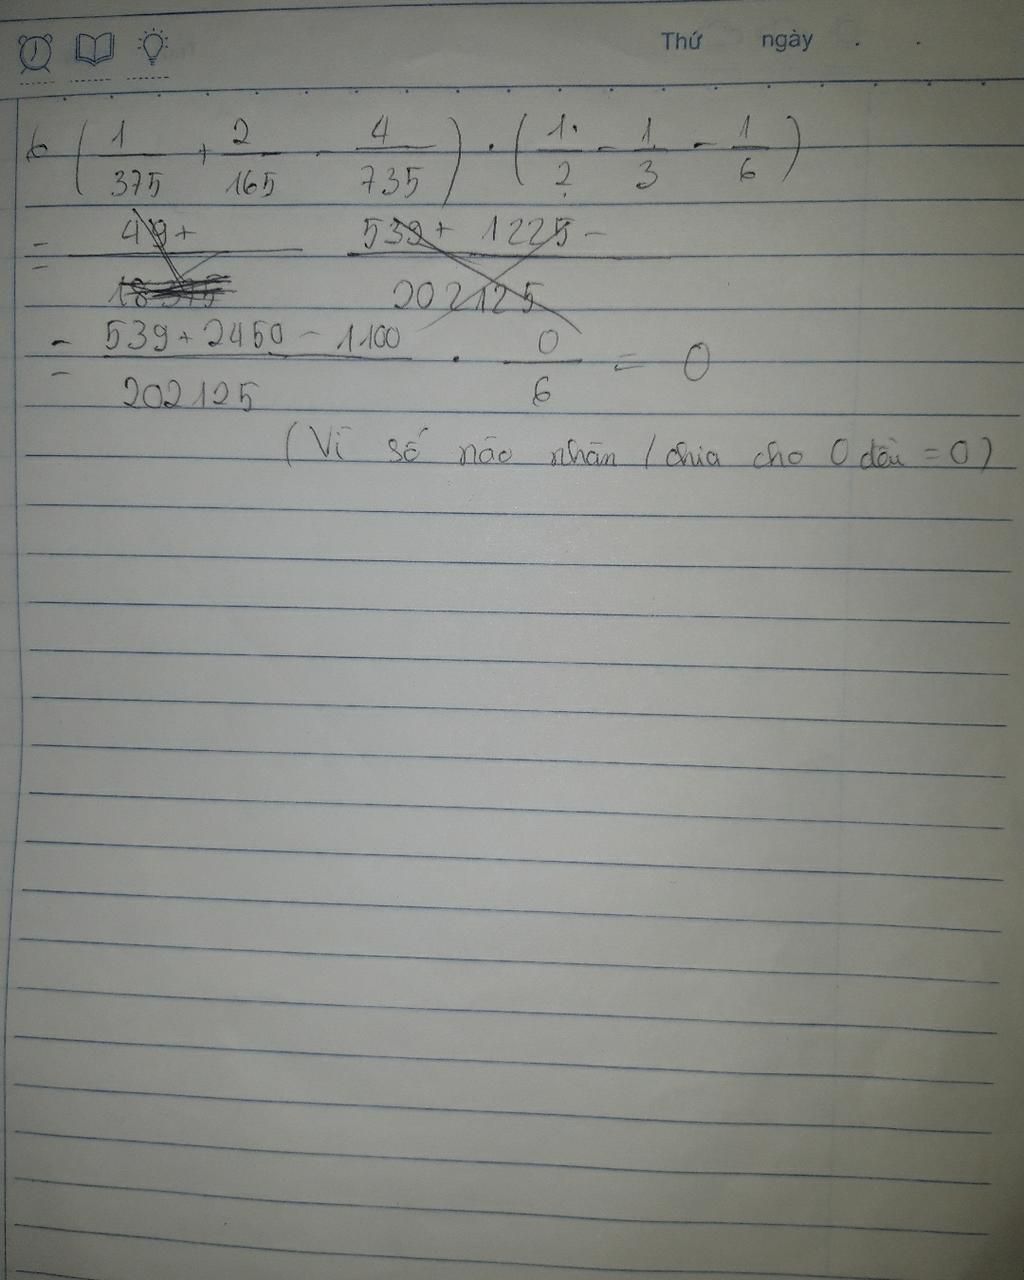 Thứ ngày . .
b (1/375 + 2/165 - 4/735) . (1/2 - 1/3 - 1/6)
= 49 + 539 + 1225 -
202125
= (539 + 2450 - 1100)/202125 . 0/6 = 0
(Vì số nào nhân / chia cho 0 đều = 0)